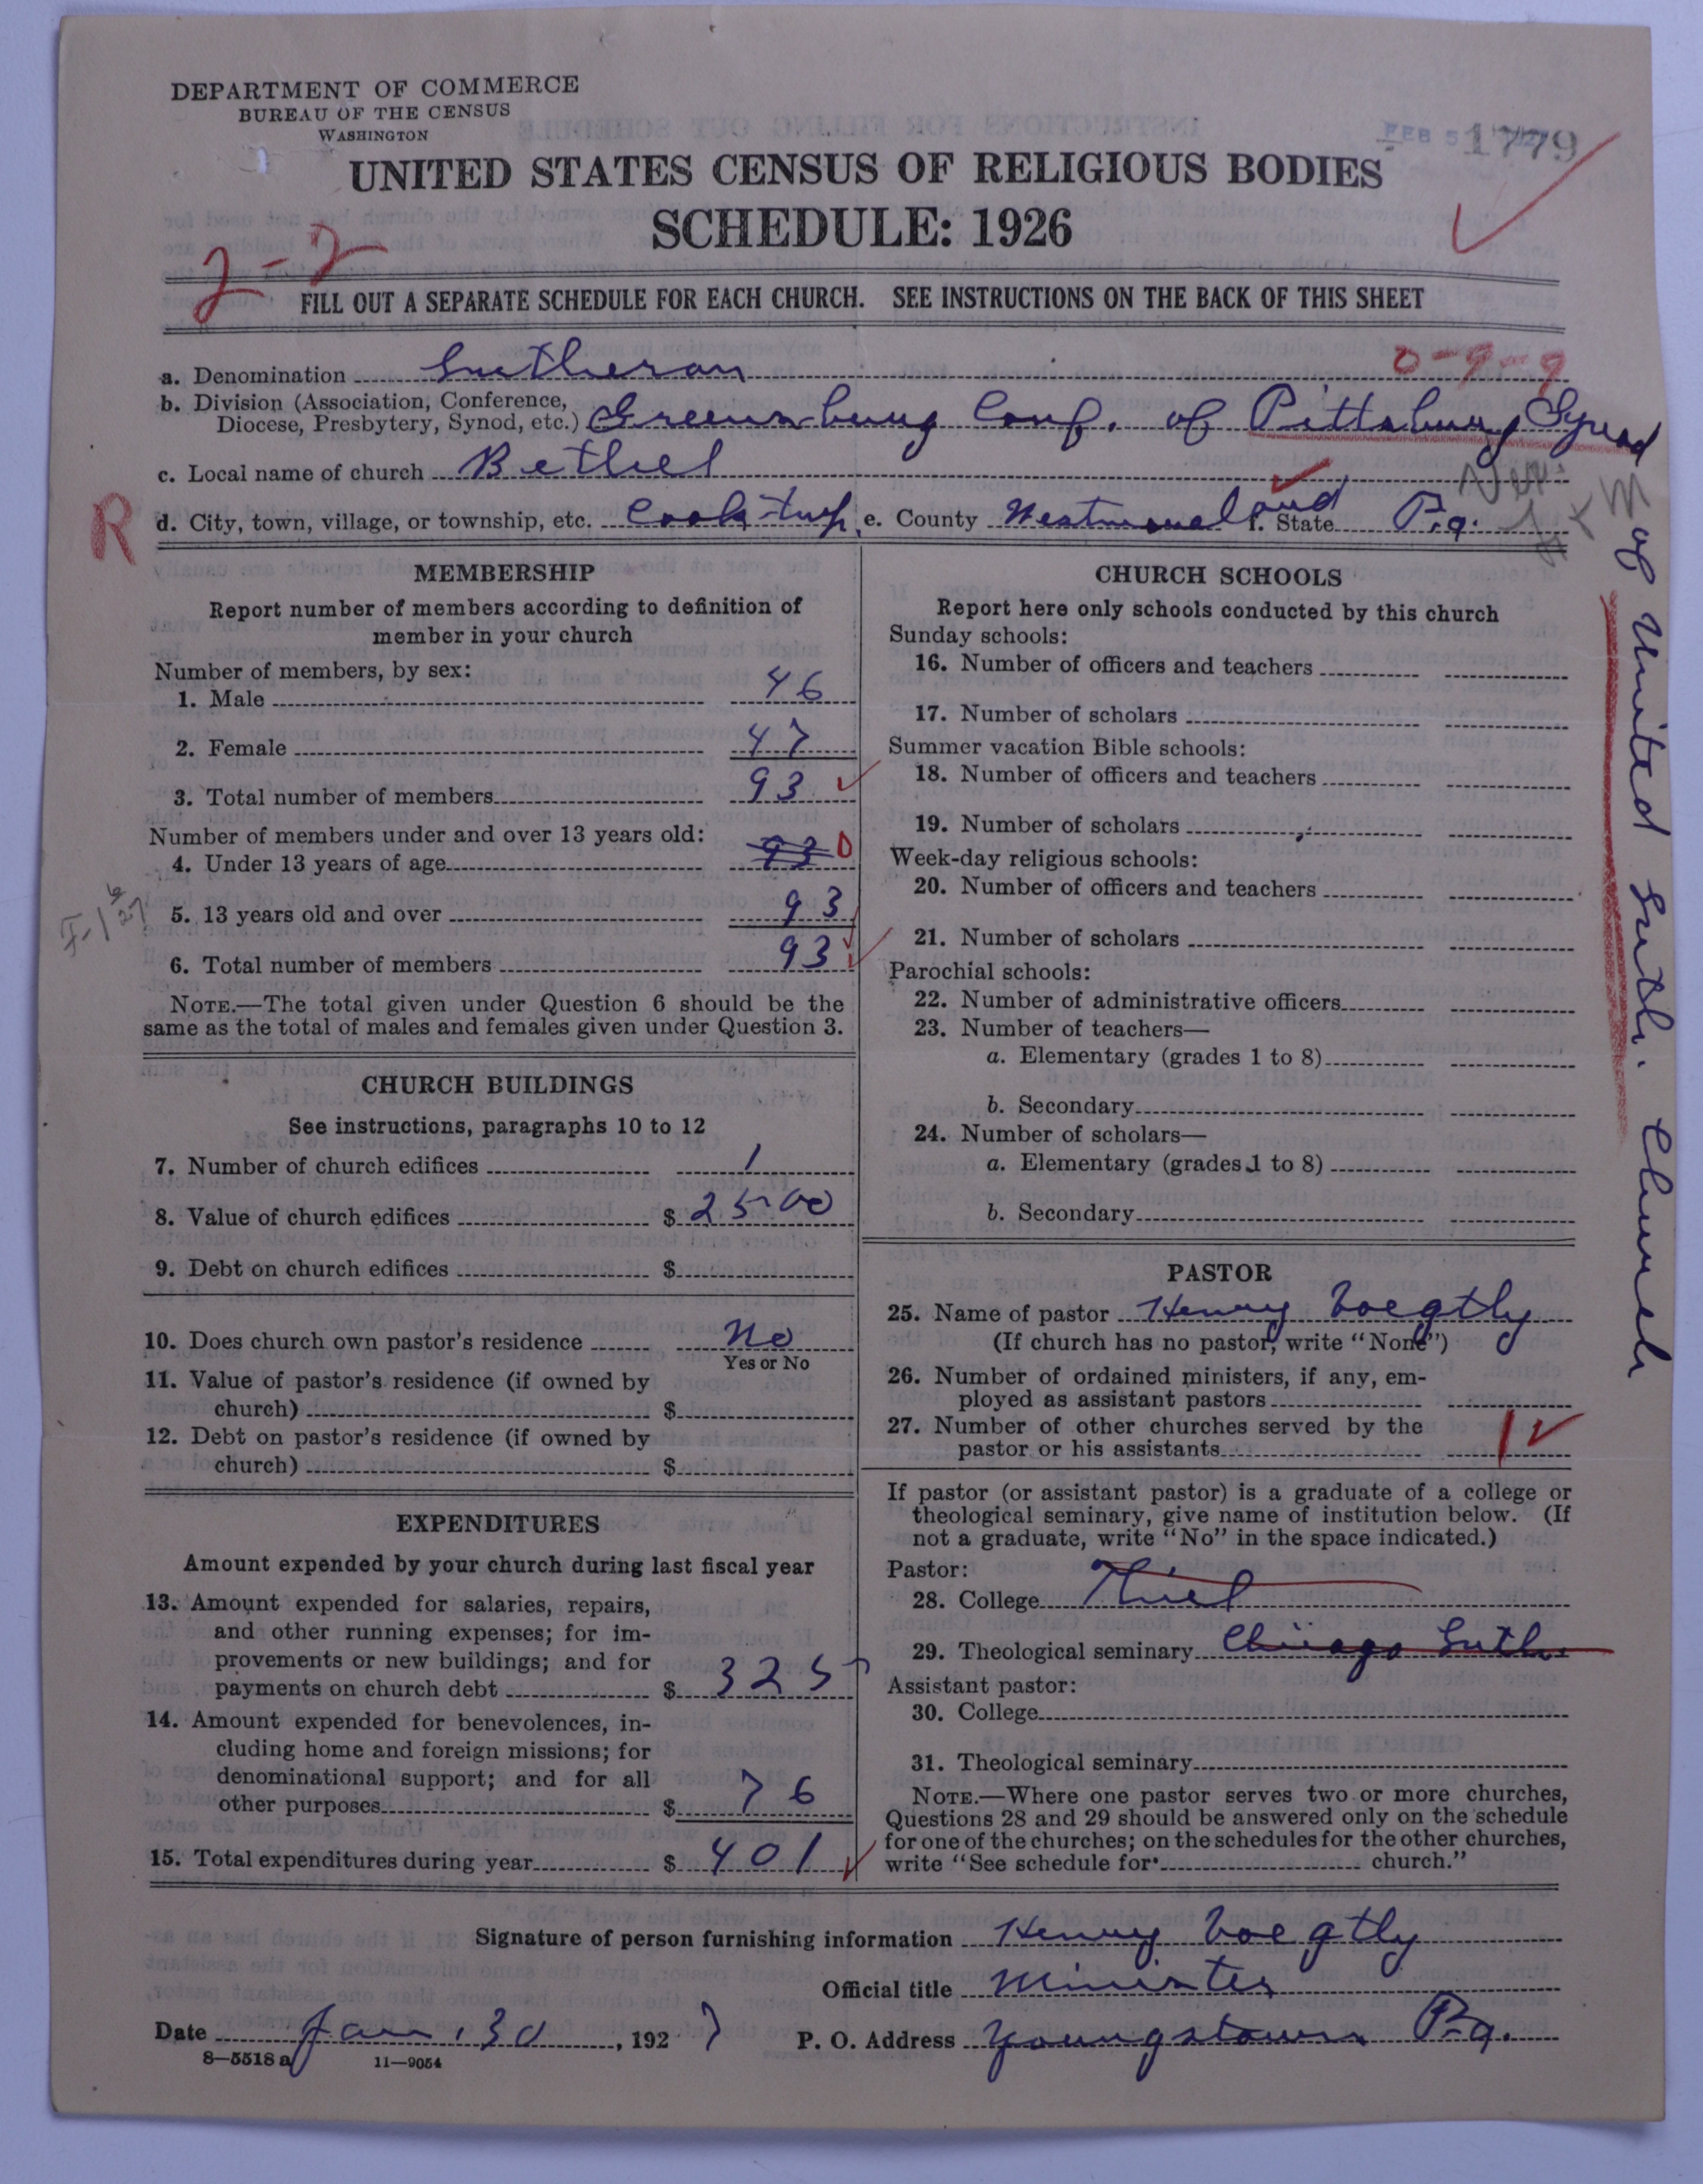 DEPARTMENT OF COMMERCE
BUREAU OF THE CENSUS
WASHINGTON
FEB 5
1779
UNITED STATES CENSUS OF RELIGIOUS BODIES
SCHEDULE: 1926
2-2
FILL OUT A SEPARATE SCHEDULE FOR EACH CHURCH. SEE INSTRUCTIONS ON THE BACK OF THIS SHEET
a. Denomination Lutheran
0-9-9
b. Division (Association, Conference,
Diocese, Presbytery, Synod, etc.) Greensburg Conf. of Pittsburg Synod
of United Luth. Church
c. Local name of church Bethel
R
d. City, town, village, or township, etc. Cook twp. e. County Westmoreland f. State Pa.
MEMBERSHIP
Report number of members according to definition of
member in your church
Number of members, by sex:
1. Male 46
2. Female 47
3. Total number of members 93
Number of members under and over 13 years old:
4. Under 13 years of age 93 0
5. 13 years old and over 93
6. Total number of members 93
NOTE.—The total given under Question 6 should be the
same as the total of males and females given under Question 3.
CHURCH BUILDINGS
See instructions, paragraphs 10 to 12
7. Number of church edifices 1
8. Value of church edifices $ 2500
9. Debt on church edifices $
10. Does church own pastor's residence No
Yes or No
11. Value of pastor's residence (if owned by
church) $
12. Debt on pastor's residence (if owned by
church) $
EXPENDITURES
Amount expended by your church during last fiscal year
13. Amount expended for salaries, repairs,
and other running expenses; for im-
provements or new buildings; and for
payments on church debt $ 325
14. Amount expended for benevolences, in-
cluding home and foreign missions; for
denominational support; and for all
other purposes $ 76
15. Total expenditures during year $ 401
CHURCH SCHOOLS
Report here only schools conducted by this church
Sunday schools:
16. Number of officers and teachers
17. Number of scholars
Summer vacation Bible schools:
18. Number of officers and teachers
19. Number of scholars
Week-day religious schools:
20. Number of officers and teachers
21. Number of scholars
Parochial schools:
22. Number of administrative officers
23. Number of teachers—
a. Elementary (grades 1 to 8)
b. Secondary
24. Number of scholars—
a. Elementary (grades 1 to 8)
b. Secondary
PASTOR
25. Name of pastor Henry Voegtly
(If church has no pastor, write "None")
26. Number of ordained ministers, if any, em-
ployed as assistant pastors
27. Number of other churches served by the
pastor or his assistants 1
If pastor (or assistant pastor) is a graduate of a college or
theological seminary, give name of institution below. (If
not a graduate, write "No" in the space indicated.)
Pastor:
28. College Thiel
29. Theological seminary Chicago Luth.
Assistant pastor:
30. College
31. Theological seminary
NOTE.—Where one pastor serves two or more churches,
Questions 28 and 29 should be answered only on the schedule
for one of the churches; on the schedules for the other churches,
write "See schedule for church."
Signature of person furnishing information Henry Voegtly
Official title Minister
Date Jan. 30, 1927
P. O. Address Youngstown Pa.
8-5518 a
11-9054